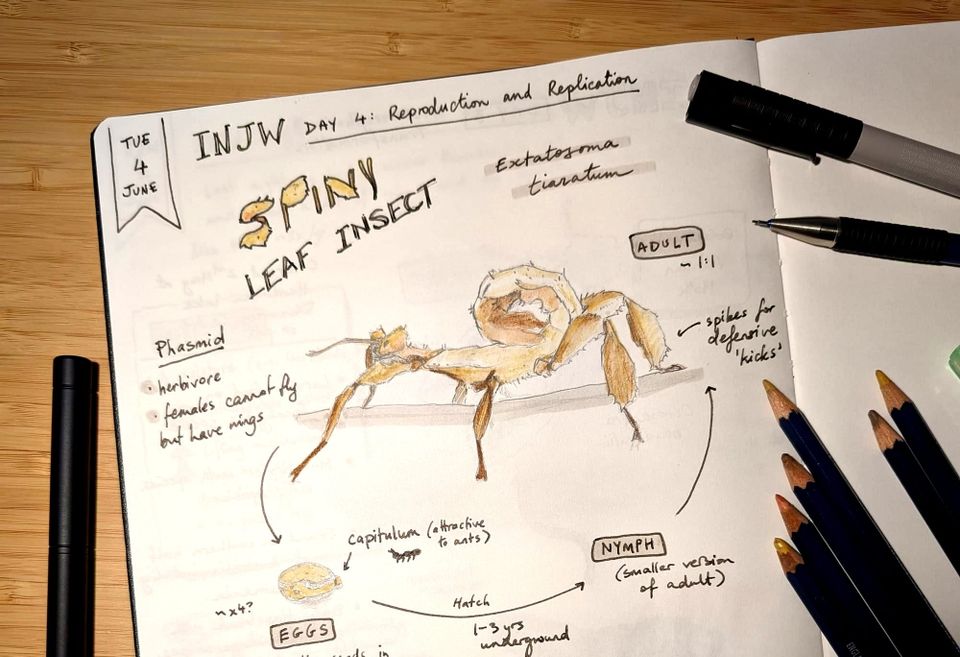 TUE
4
JUNE
INJW DAY 4: Reproduction and Replication
SPINY
LEAF INSECT
Extatosoma
tiaratum
ADULT
~ 1:1
spikes for
defensive
'kicks'
Phasmid
• herbivore
• females cannot fly
but have wings
capitulum (attractive
to ants)
~ x4?
EGGS
Hatch
1-3 yrs
underground
NYMPH
(smaller version
of adult)